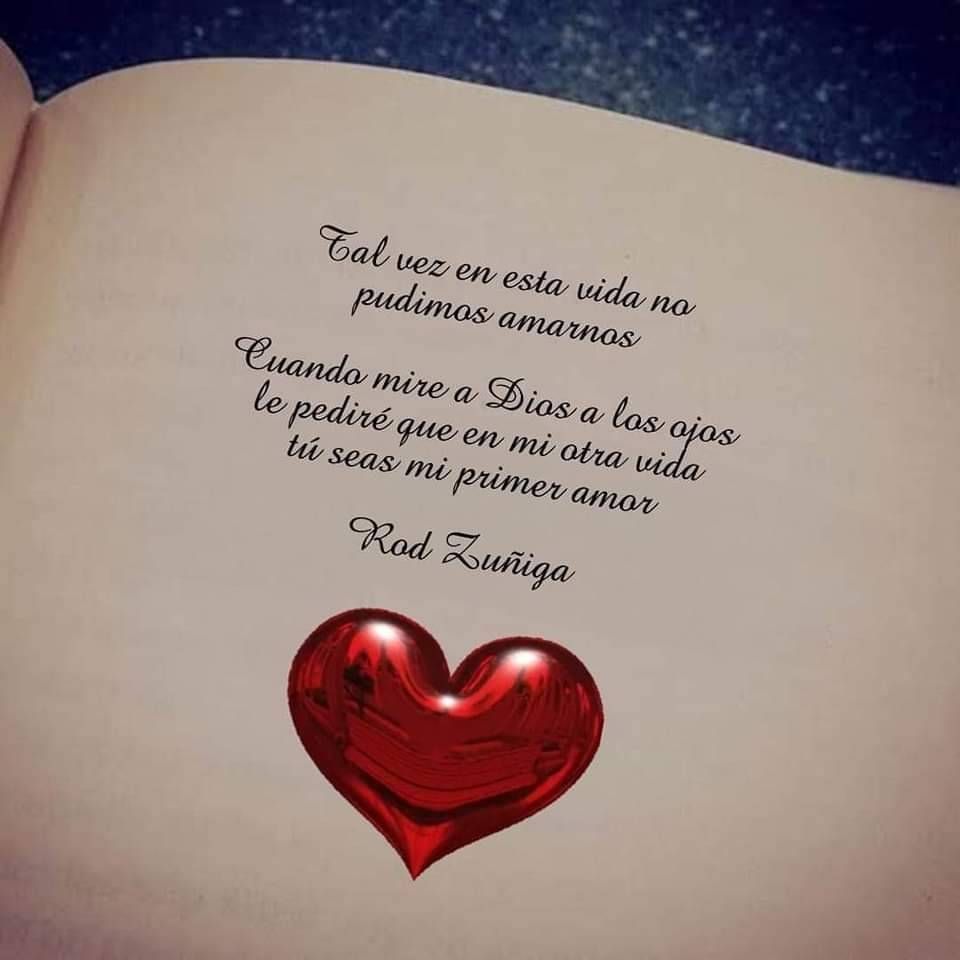 Tal vez en esta vida no
pudimos amarnos
Cuando mire a Dios a los ojos
le pediré que en mi otra vida
tú seas mi primer amor
Rod Zuñiga